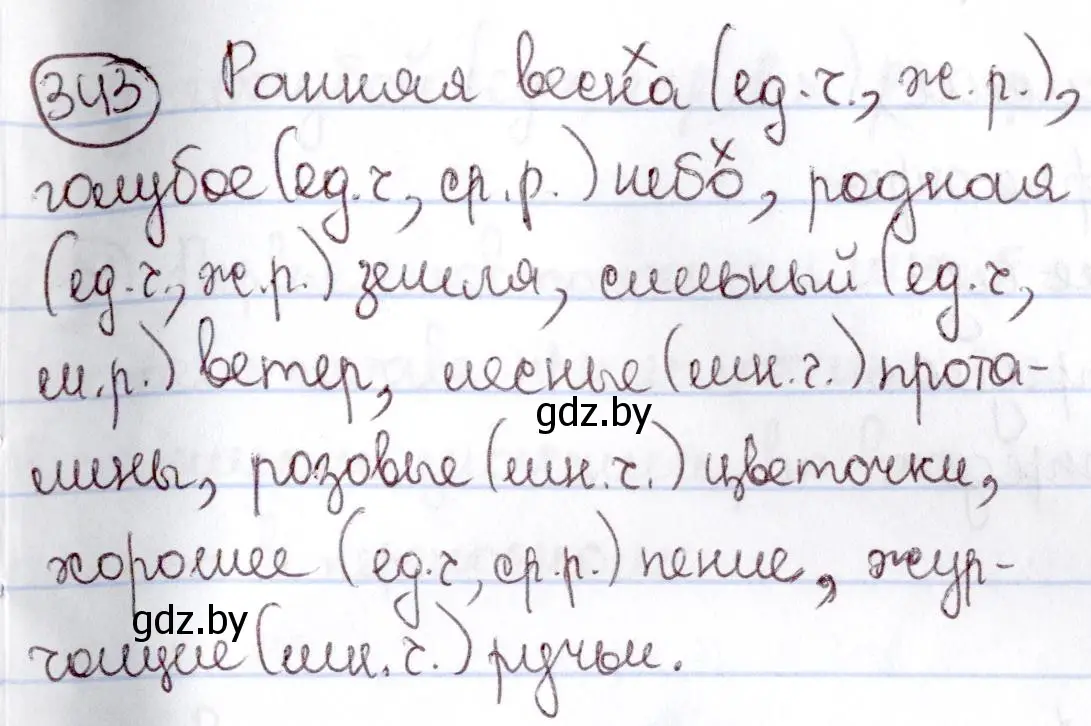 343 Ранняя весна (ед.ч., ж.р.),
голубое (ед.ч, ср.р.) небо, родная
(ед.ч., ж.р.) земля, сильный (ед.ч,
м.р.) ветер, лесные (мн.ч.) прота-
gdz.by
лины, розовые (мн.ч.) цветочки,
хорошее (ед.ч, ср.р.) пение, жур-
gdz.by
чащие (мн.ч.) ручьи.